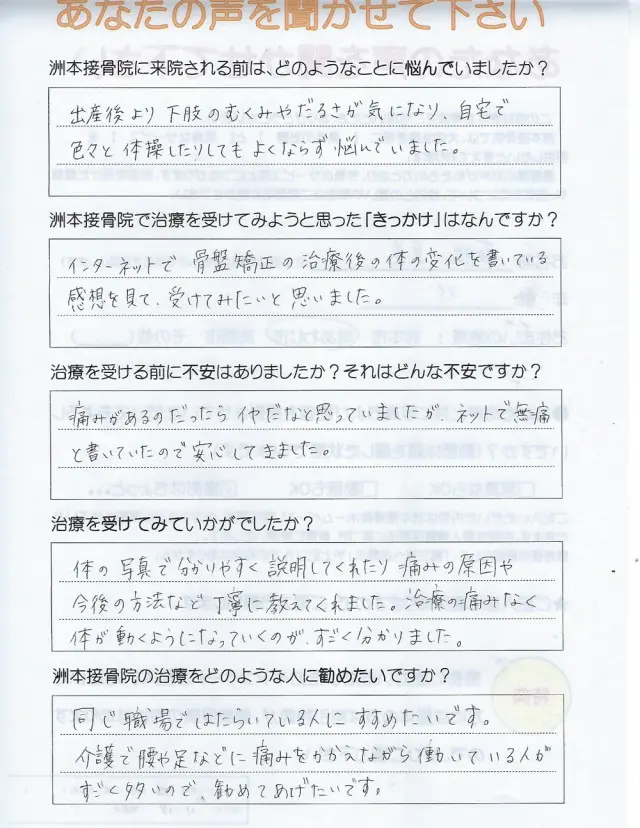 あなたの声を聞かせて下さい
洲本接骨院に来院される前は、どのようなことに悩んでいましたか？
出産後より下肢のむくみやだるさが気になり、自宅で
色々と体操したりしてもよくならず悩んでいました。
洲本接骨院で治療を受けてみようと思った「きっかけ」はなんですか？
インターネットで骨盤矯正の治療後の体の変化を書いている
感想を見て、受けてみたいと思いました。
治療を受ける前に不安はありましたか？それはどんな不安ですか？
痛みがあるのだったらイヤだなと思っていましたが、ネットで無痛
と書いていたので安心してきました。
治療を受けてみていかがでしたか？
体の写真で分かりやすく説明してくれたり痛みの原因や
今後の方法など丁寧に教えてくれました。治療の痛みなく
体が動くようになっていくのが、すごく分かりました。
洲本接骨院の治療をどのような人に勧めたいですか？
同じ職場ではたらいている人にすすめたいです。
介護で腰や足などに痛みをかかえながら働いている人が
すごく多いので、勧めてあげたいです。